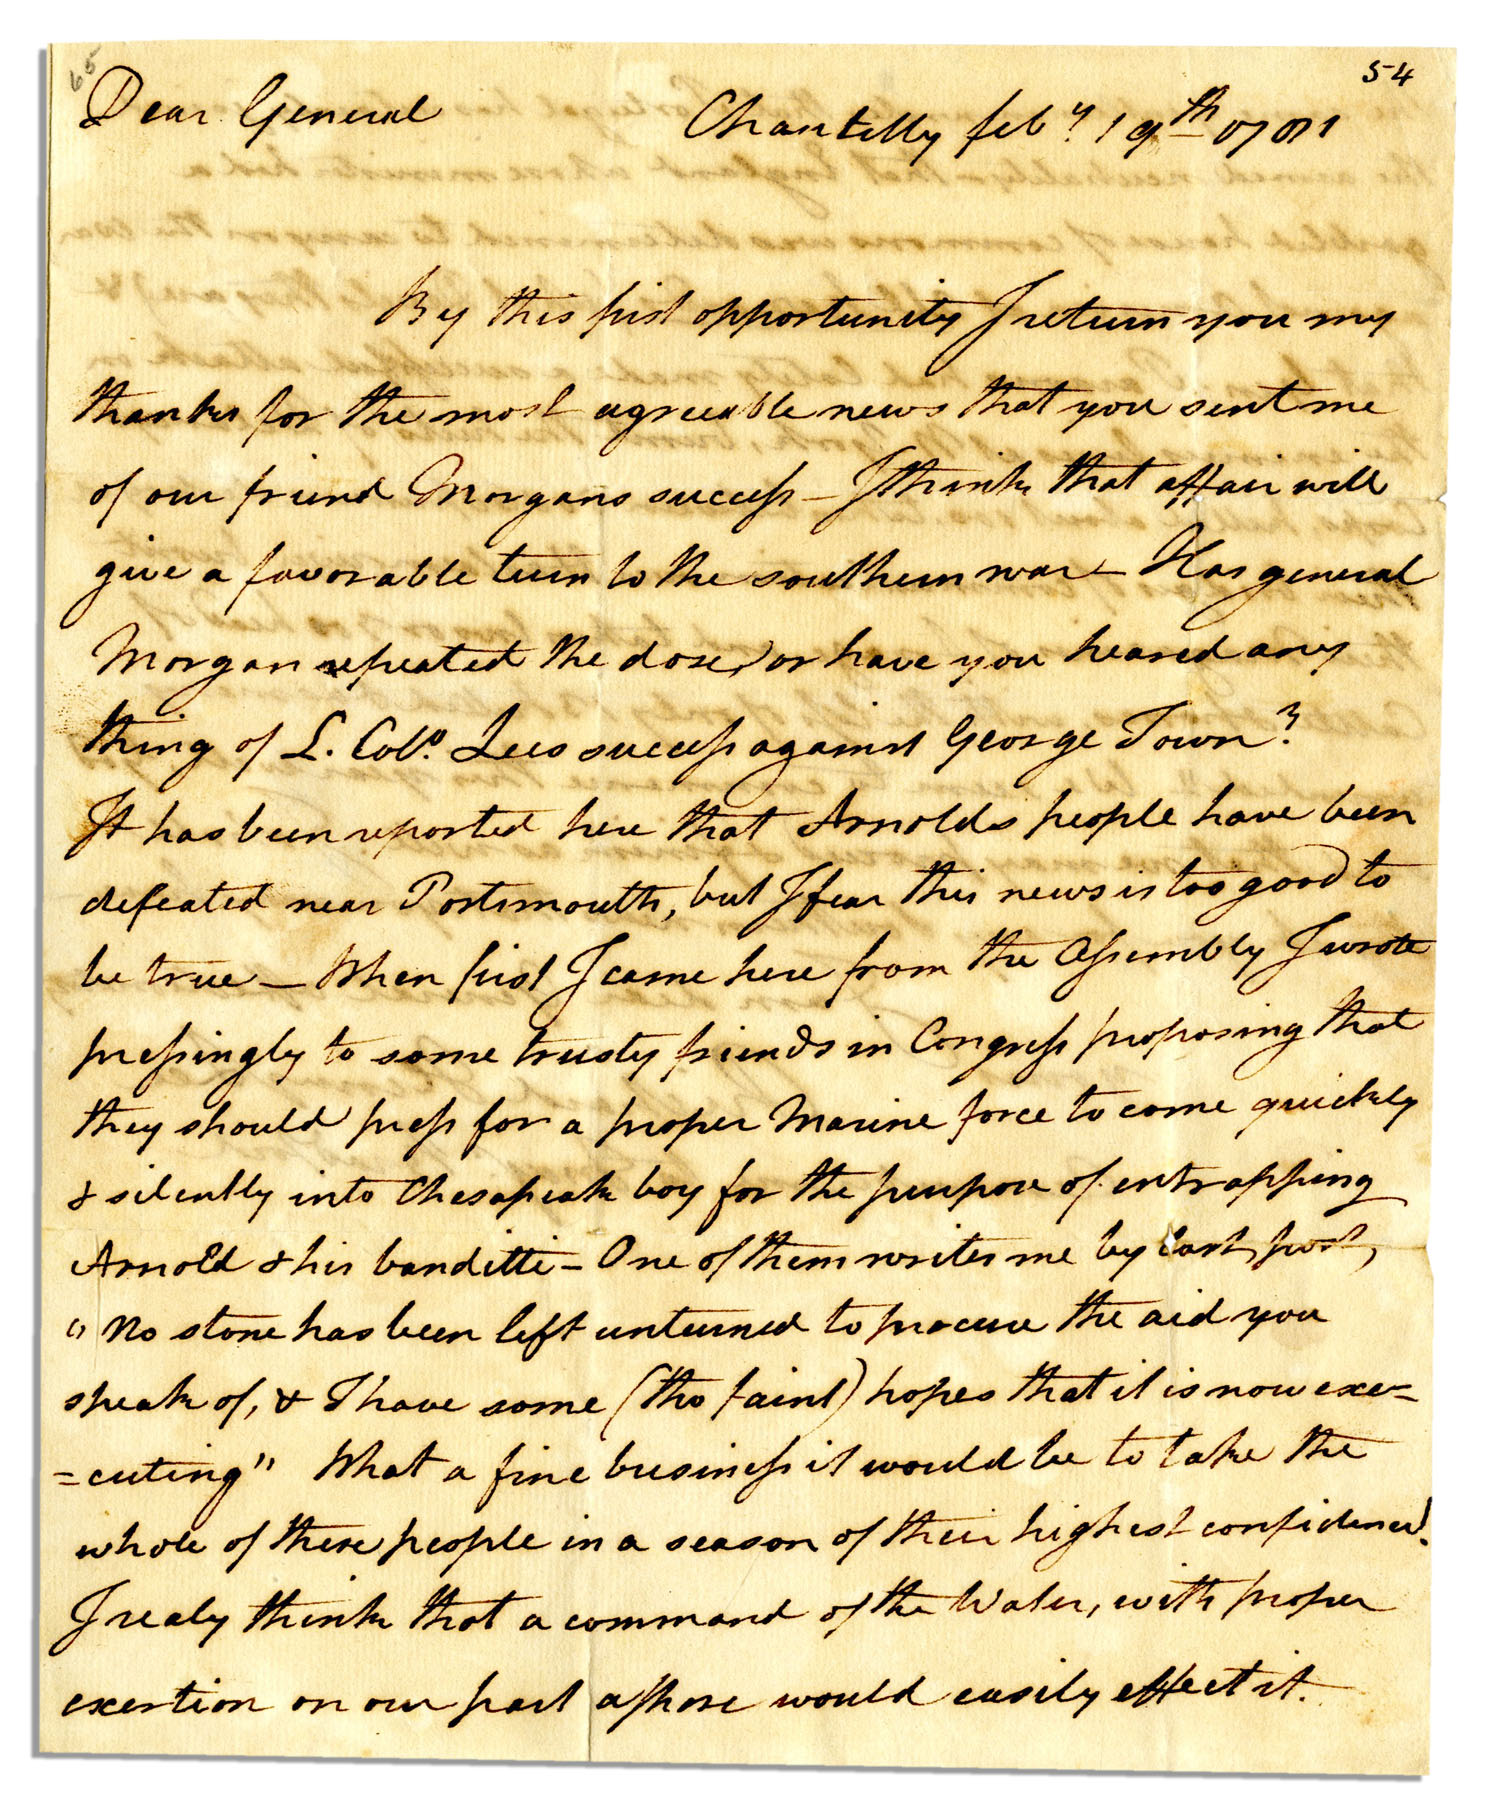 65
54
Dear General
Chantilly feby. 19th 1781
By this first opportunity I return you my
thanks for the most agreeable news that you sent me
of our friend Morgans success – I think that affair will
give a favorable turn to the southern war – Has general
Morgan repeated the dose, or have you heared any
thing of L. Colo. Lees success against George Town?
It has been reported here that Arnolds people have been
defeated near Portsmouth, but I fear this news is too good to
be true – When first I came here from the Assembly I wrote
pressingly to some trusty friends in Congress proposing that
they should press for a proper Marine force to come quickly
& silently into Chesapeak bay for the purpose of entrapping
Arnold & his banditti – One of them writes me by last post,
"No stone has been left unturned to procure the aid you
speak of, & I have some (tho faint) hopes that it is now exe=
=cuting" What a fine business it would be to take the
whole of these people in a season of their highest confidence!
I realy think that a command of the Water, with proper
exertion on our part ashore would easily effect it.